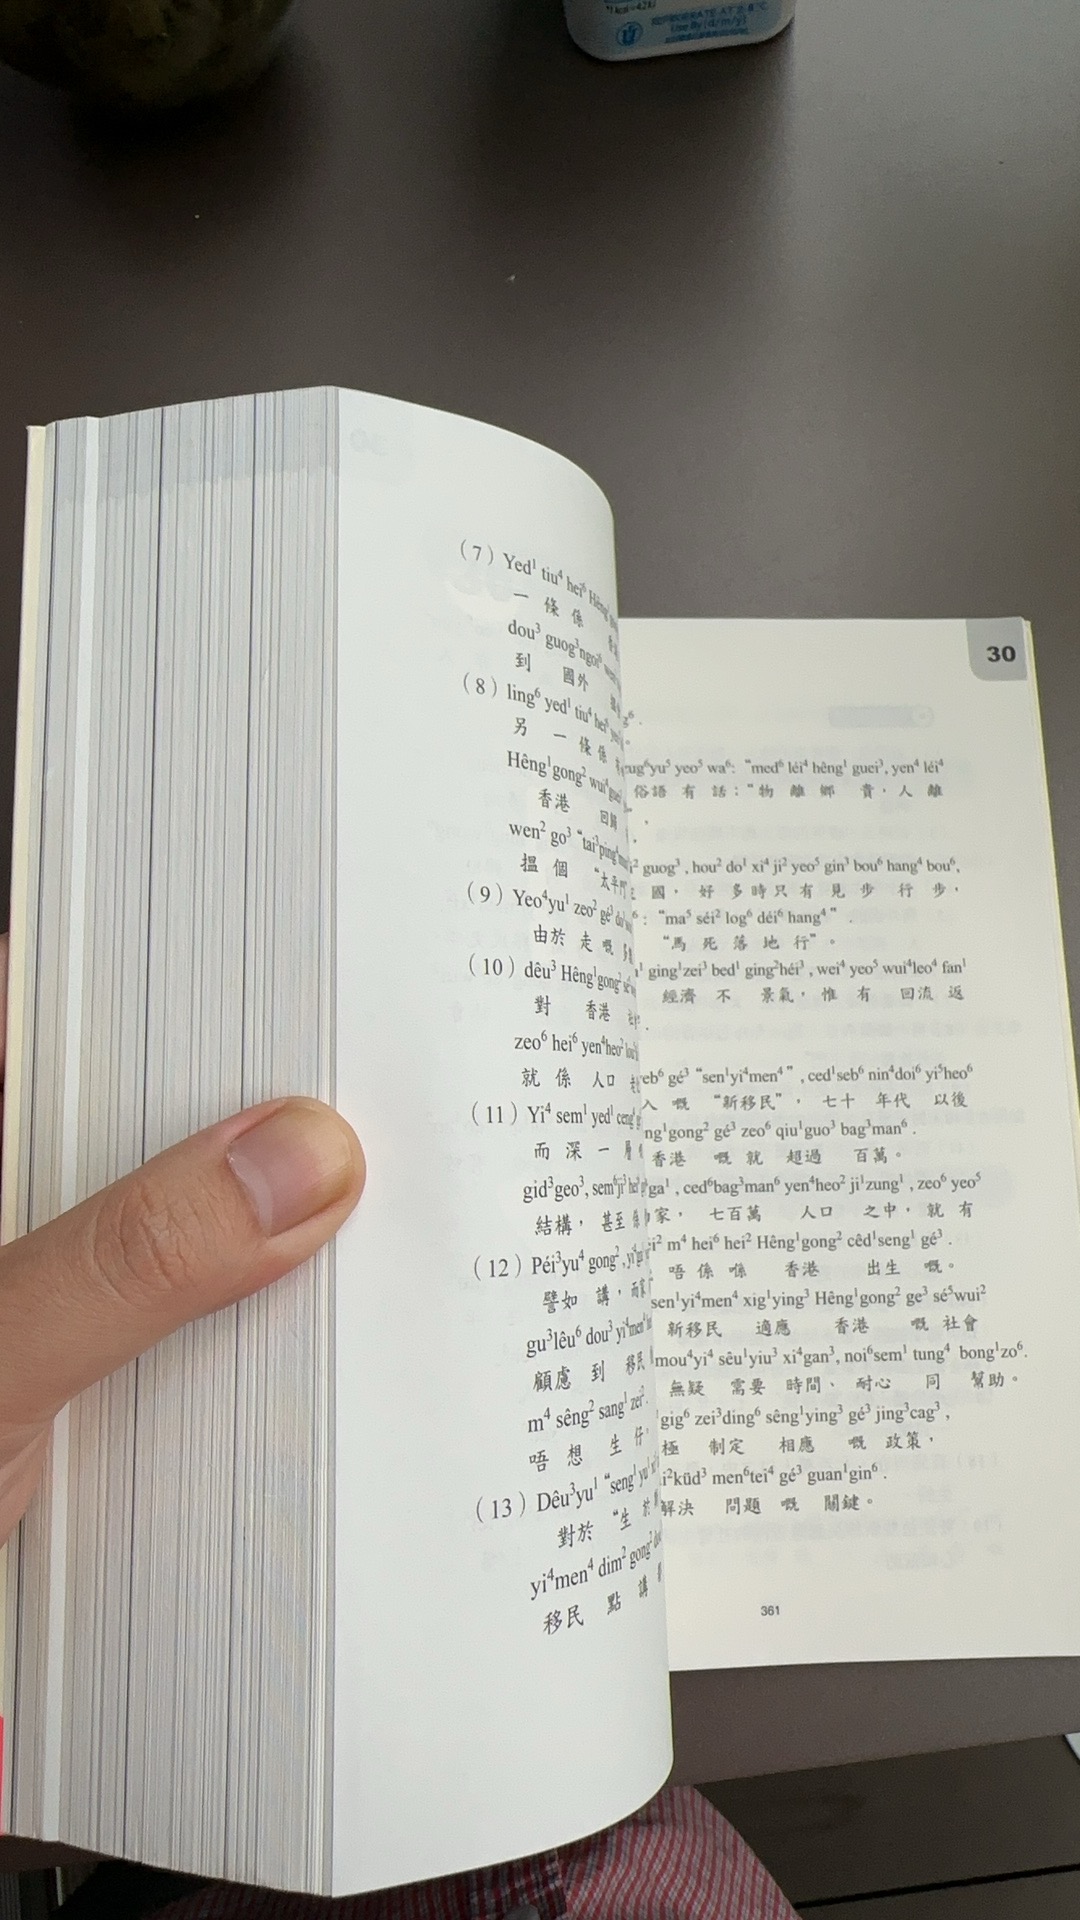 REFRIGERATE AT 2-8°C
Use By (d/m/y)
(7) Yed¹ tiu⁴ hei⁶ Hêng¹
一 條 係
dou³ guog³ngoi⁶
到 國外
(8) ling⁶ yed¹ tiu⁴ hei⁶
另 一 條 係
Hêng¹gong² wui⁴guei¹
香港 回歸
wen² go³ “tai³ping⁴
搵 個 “太平門
(9) Yeo⁴yu¹ zeo² gé³
由於 走 嘅
(10) dêu³ Hêng¹gong²
對 香港
zeo⁶ hei⁶ yen⁴heo²
就 係 人口
(11) Yi⁴ sem¹ yed¹ ceng⁴
而 深 一 層
gid³geo³, sem⁶ji³ hei⁶
結構， 甚至 係
(12) Péi³yu⁴ gong²,
譬如 講，
gu³lêu⁶ dou³ yi⁴men⁴
顧慮 到 移民
m⁴ sêng² sang¹ zei².
唔 想 生 仔
(13) Dêu³yu¹ “seng¹ yu¹
對於 “生 於
yi⁴men⁴ dim² gong²
移民 點 講
30
zug⁶yu⁵ yeo⁵ wa⁶: “med⁶ léi⁴ hêng¹ guei³, yen⁴ léi⁴
俗語 有 話：“物 離 鄉 貴，人 離
guog³ , hou² do¹ xi⁴ ji² yeo⁵ gin³ bou⁶ hang⁴ bou⁶,
國， 好 多 時 只 有 見 步 行 步，
: “ma⁵ séi² log⁶ déi⁶ hang⁴” .
“馬 死 落 地 行”。
ging¹zei³ bed¹ ging²héi³ , wei⁴ yeo⁵ wui⁴leo⁴ fan¹
經濟 不 景氣， 惟 有 回流 返
gé³ “sen¹yi⁴men⁴” , ced¹seb⁶ nin⁴doi⁶ yi⁵heo⁶
入 嘅 “新移民”， 七十 年代 以後
gé³ zeo⁶ qiu¹guo³ bag³man⁶ .
香港 嘅 就 超過 百萬。
ga¹ , ced⁶bag³man⁶ yen⁴heo² ji¹zung¹ , zeo⁶ yeo⁵
家， 七百萬 人口 之中， 就 有
m⁴ hei⁶ hei² Hêng¹gong² cêd¹seng¹ gé³ .
唔 係 喺 香港 出生 嘅。
sen¹yi⁴men⁴ xig¹ying³ Hêng¹gong² ge³ sé⁵wui²
新移民 適應 香港 嘅 社會
mou⁴yi⁴ sêu¹yiu³ xi⁴gan³, noi⁶sem¹ tung⁴ bong¹zo⁶.
無疑 需要 時間、 耐心 同 幫助。
gig⁶ zei³ding⁶ sêng¹ying³ gé³ jing³cag³ ,
極 制定 相應 嘅 政策，
men⁶tei⁴ gé³ guan¹gin⁶ .
解決 問題 嘅 關鍵。
361